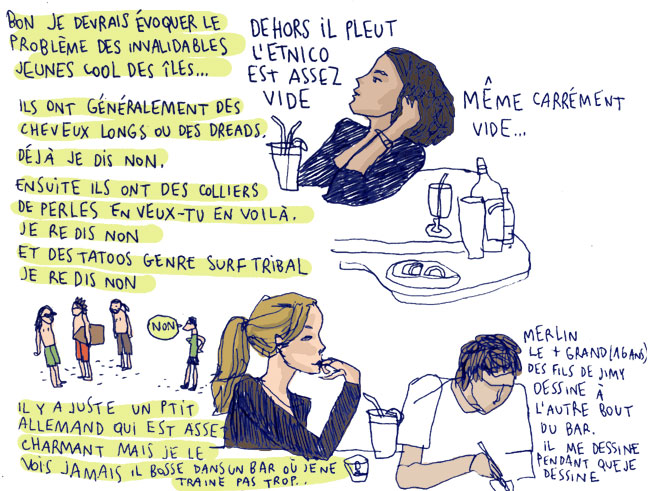 BON JE DEVRAIS ÉVOQUER LE
PROBLÈME DES INVALIDABLES
JEUNES COOL DES ÎLES...
ILS ONT GÉNÉRALEMENT DES
CHEVEUX LONGS OU DES DREADS.
DÉJÀ JE DIS NON.
ENSUITE ILS ONT DES COLLIERS
DE PERLES EN VEUX-TU EN VOILÀ.
JE RE DIS NON
ET DES TATOOS GENRE SURF TRIBAL
JE RE DIS NON
NON
IL Y A JUSTE UN PTIT
ALLEMAND QUI EST ASSE
CHARMANT MAIS JE LE
VOIS JAMAIS IL BOSSE DANS UN BAR OÙ JE NE
TRAINE PAS TROP..
DEHORS IL PLEUT
L'ETNICO
EST ASSEZ
VIDE
MÊME CARRÉMENT
VIDE...
MERLIN
LE + GRAND (16 ANS)
DES FILS DE JIMY
DESSINE À
L'AUTRE BOUT
DU BAR.
IL ME DESSINE
PENDANT QUE JE
DESSINE